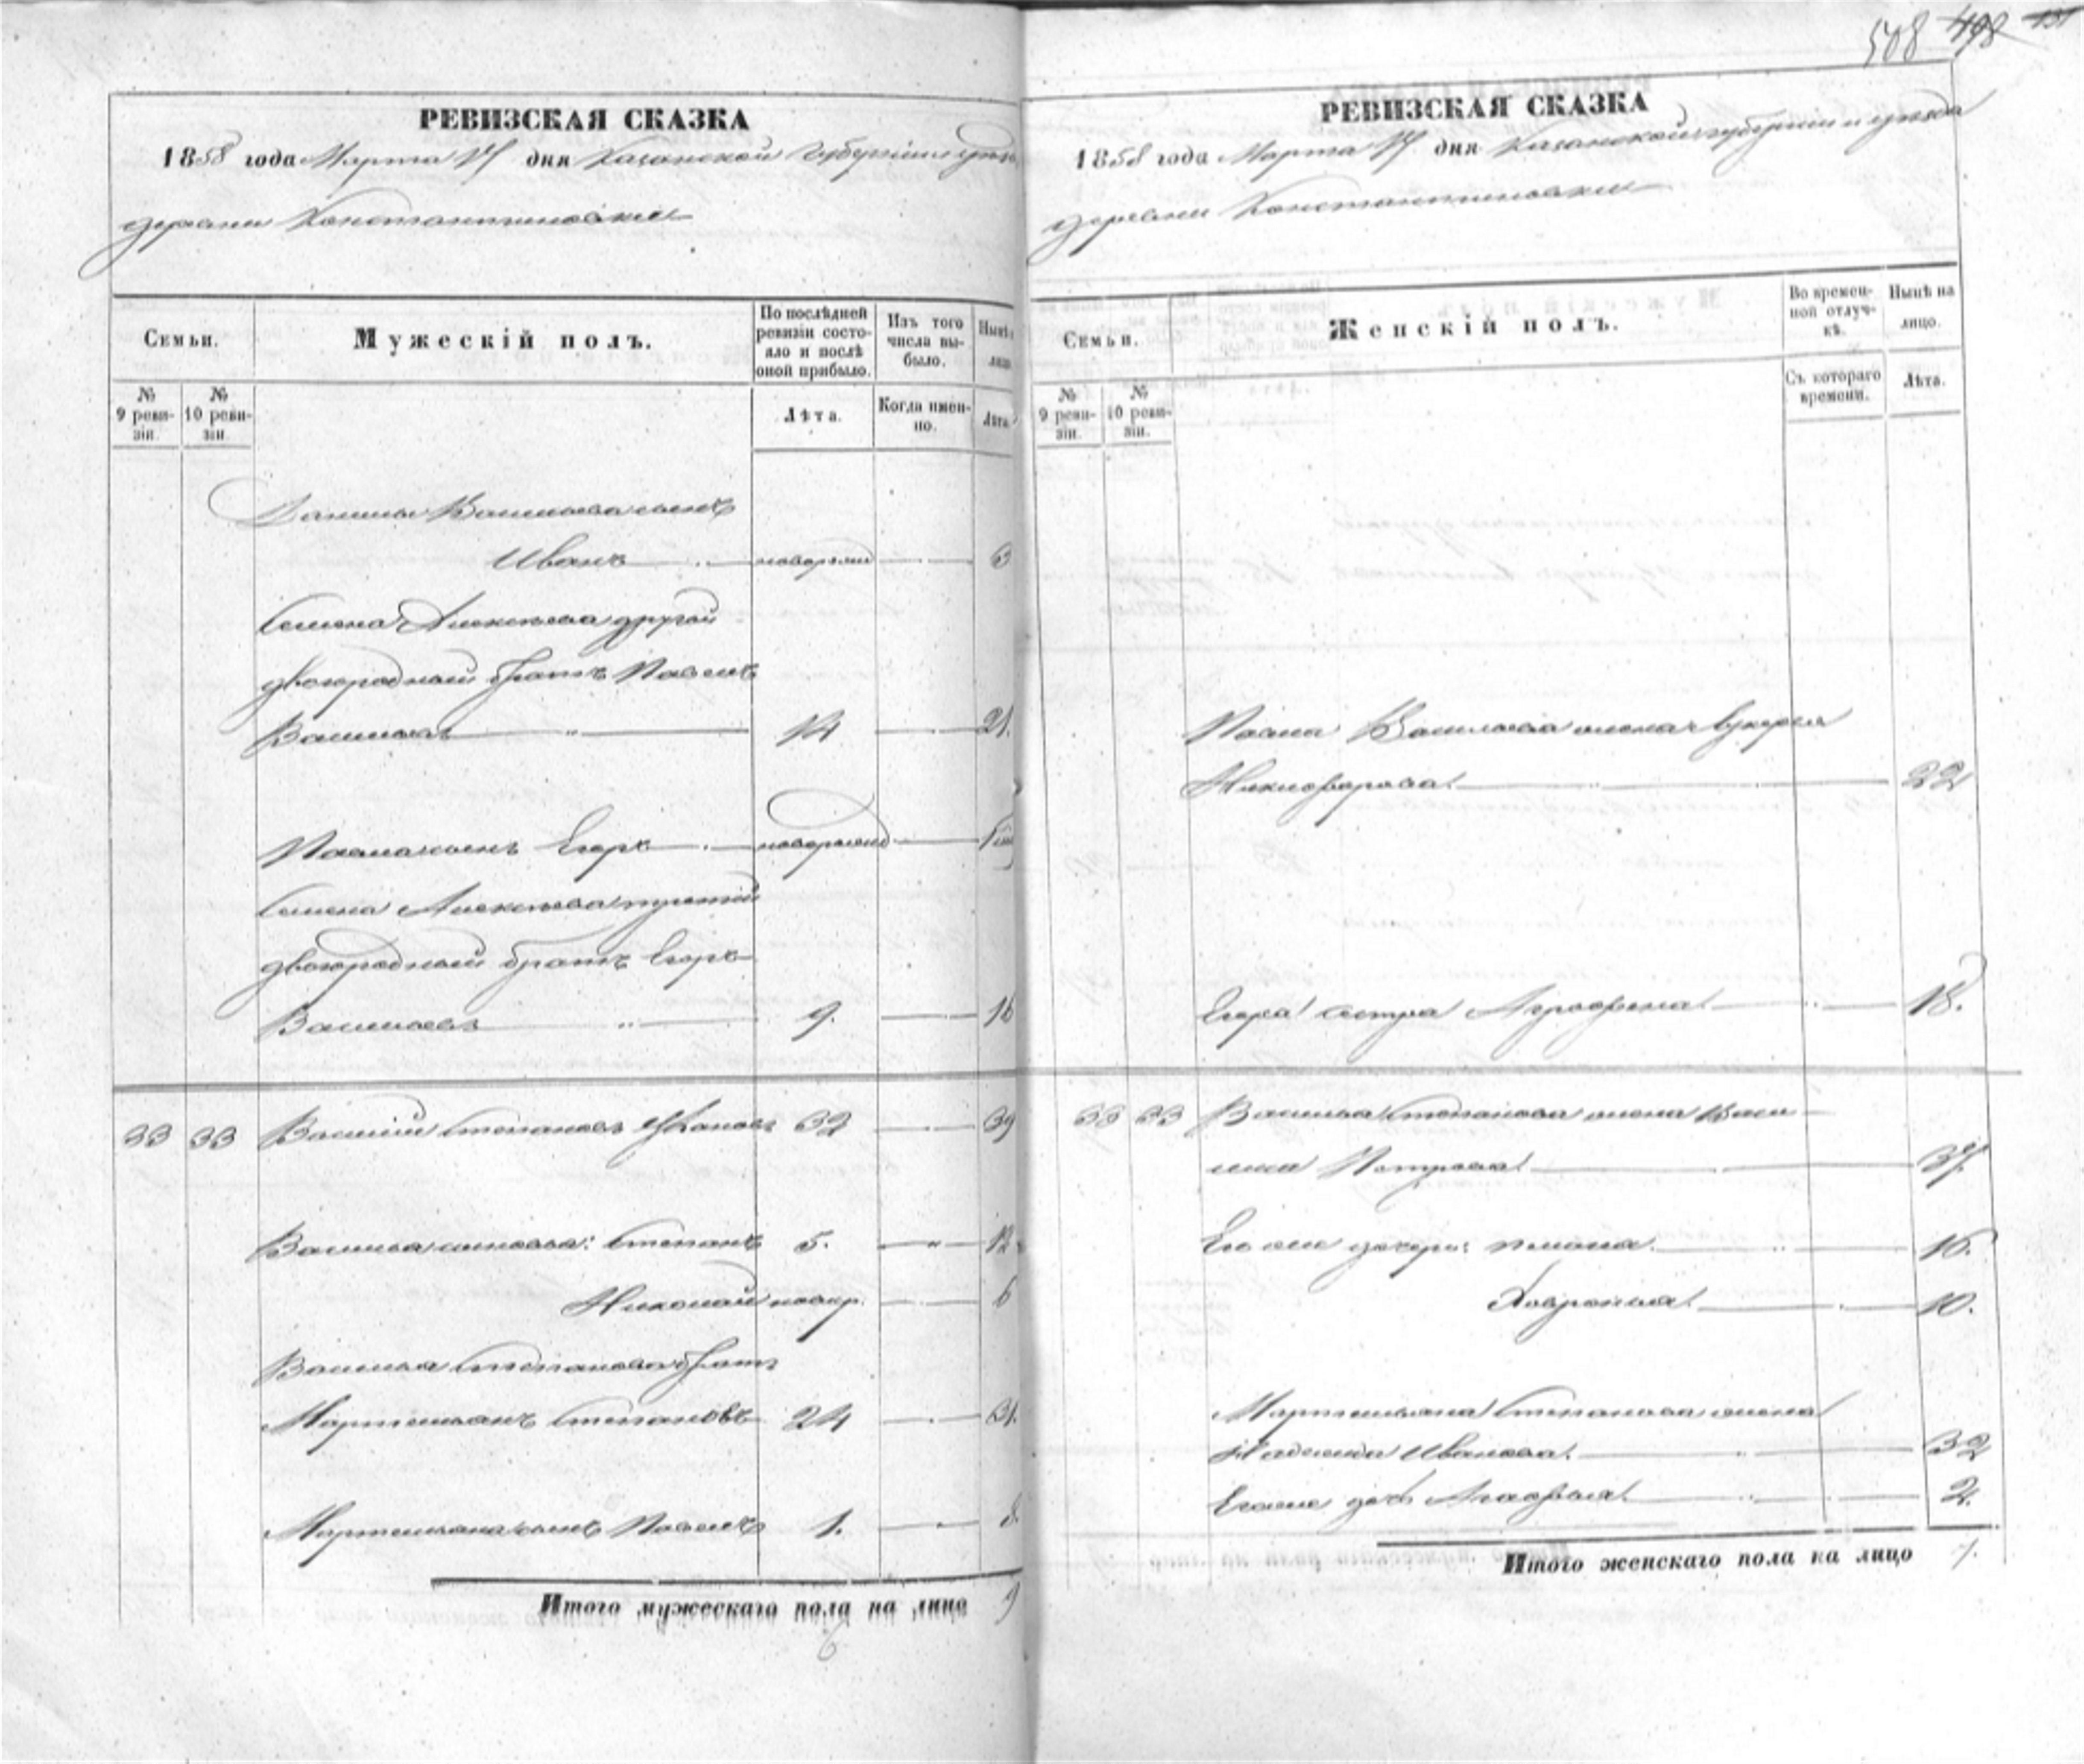 508 498 131
РЕВИЗСКАЯ СКАЗКА
1858 года Марта 17 дня Казанской Губернии и уезда
деревни Константиновки
Семьи.
Мужескій полъ.
По послѣдней ревизіи состояло и послѣ оной прибыло.
Изъ того числа выбыло.
Нынѣ на лицо
№ 9 ревизіи.
№ 10 ревизіи.
Лѣта.
Когда именно.
Лѣта.
Данилы Васильева сынъ
Иванъ новорожд 3
Семена Алексѣева другой
двоюродный братъ Павелъ
Васильевъ 14 21.
Павла сынъ Егоръ новорожд
Семена Алексѣева третій
двоюродный братъ Егоръ
Васильевъ 9. 16
33 33 Василій Степановъ 32 39
Василья сыновья: Степанъ 5. 12
Николай новор. 6
Василья Степанова братъ
Мартемьянъ Степановъ 24 31.
Мартемьяна сынъ Павелъ 1. 8.
Итого мужескаго пола на лицо 9
6
РЕВИЗСКАЯ СКАЗКА
1858 года Марта 17 дня Казанской губернии и уезда
деревни Константиновки
Семьи.
Женскій полъ.
Во временной отлучкѣ.
Нынѣ на лицо.
№ 9 ревизіи.
№ 10 ревизіи.
Съ котораго времени.
Лѣта.
Павла Васильева жена Лукерья
Никифорова 22
Егора сестра Аграфена 18.
33 33 Василья Степанова жена Васи
лиса Петрова 37.
Его же дочери: 16.
Хавронья 10.
Мартемьяна Степанова жена
Надежда Иванова 32
Его же дочь Агафья 2.
Итого женскаго пола на лицо 7.